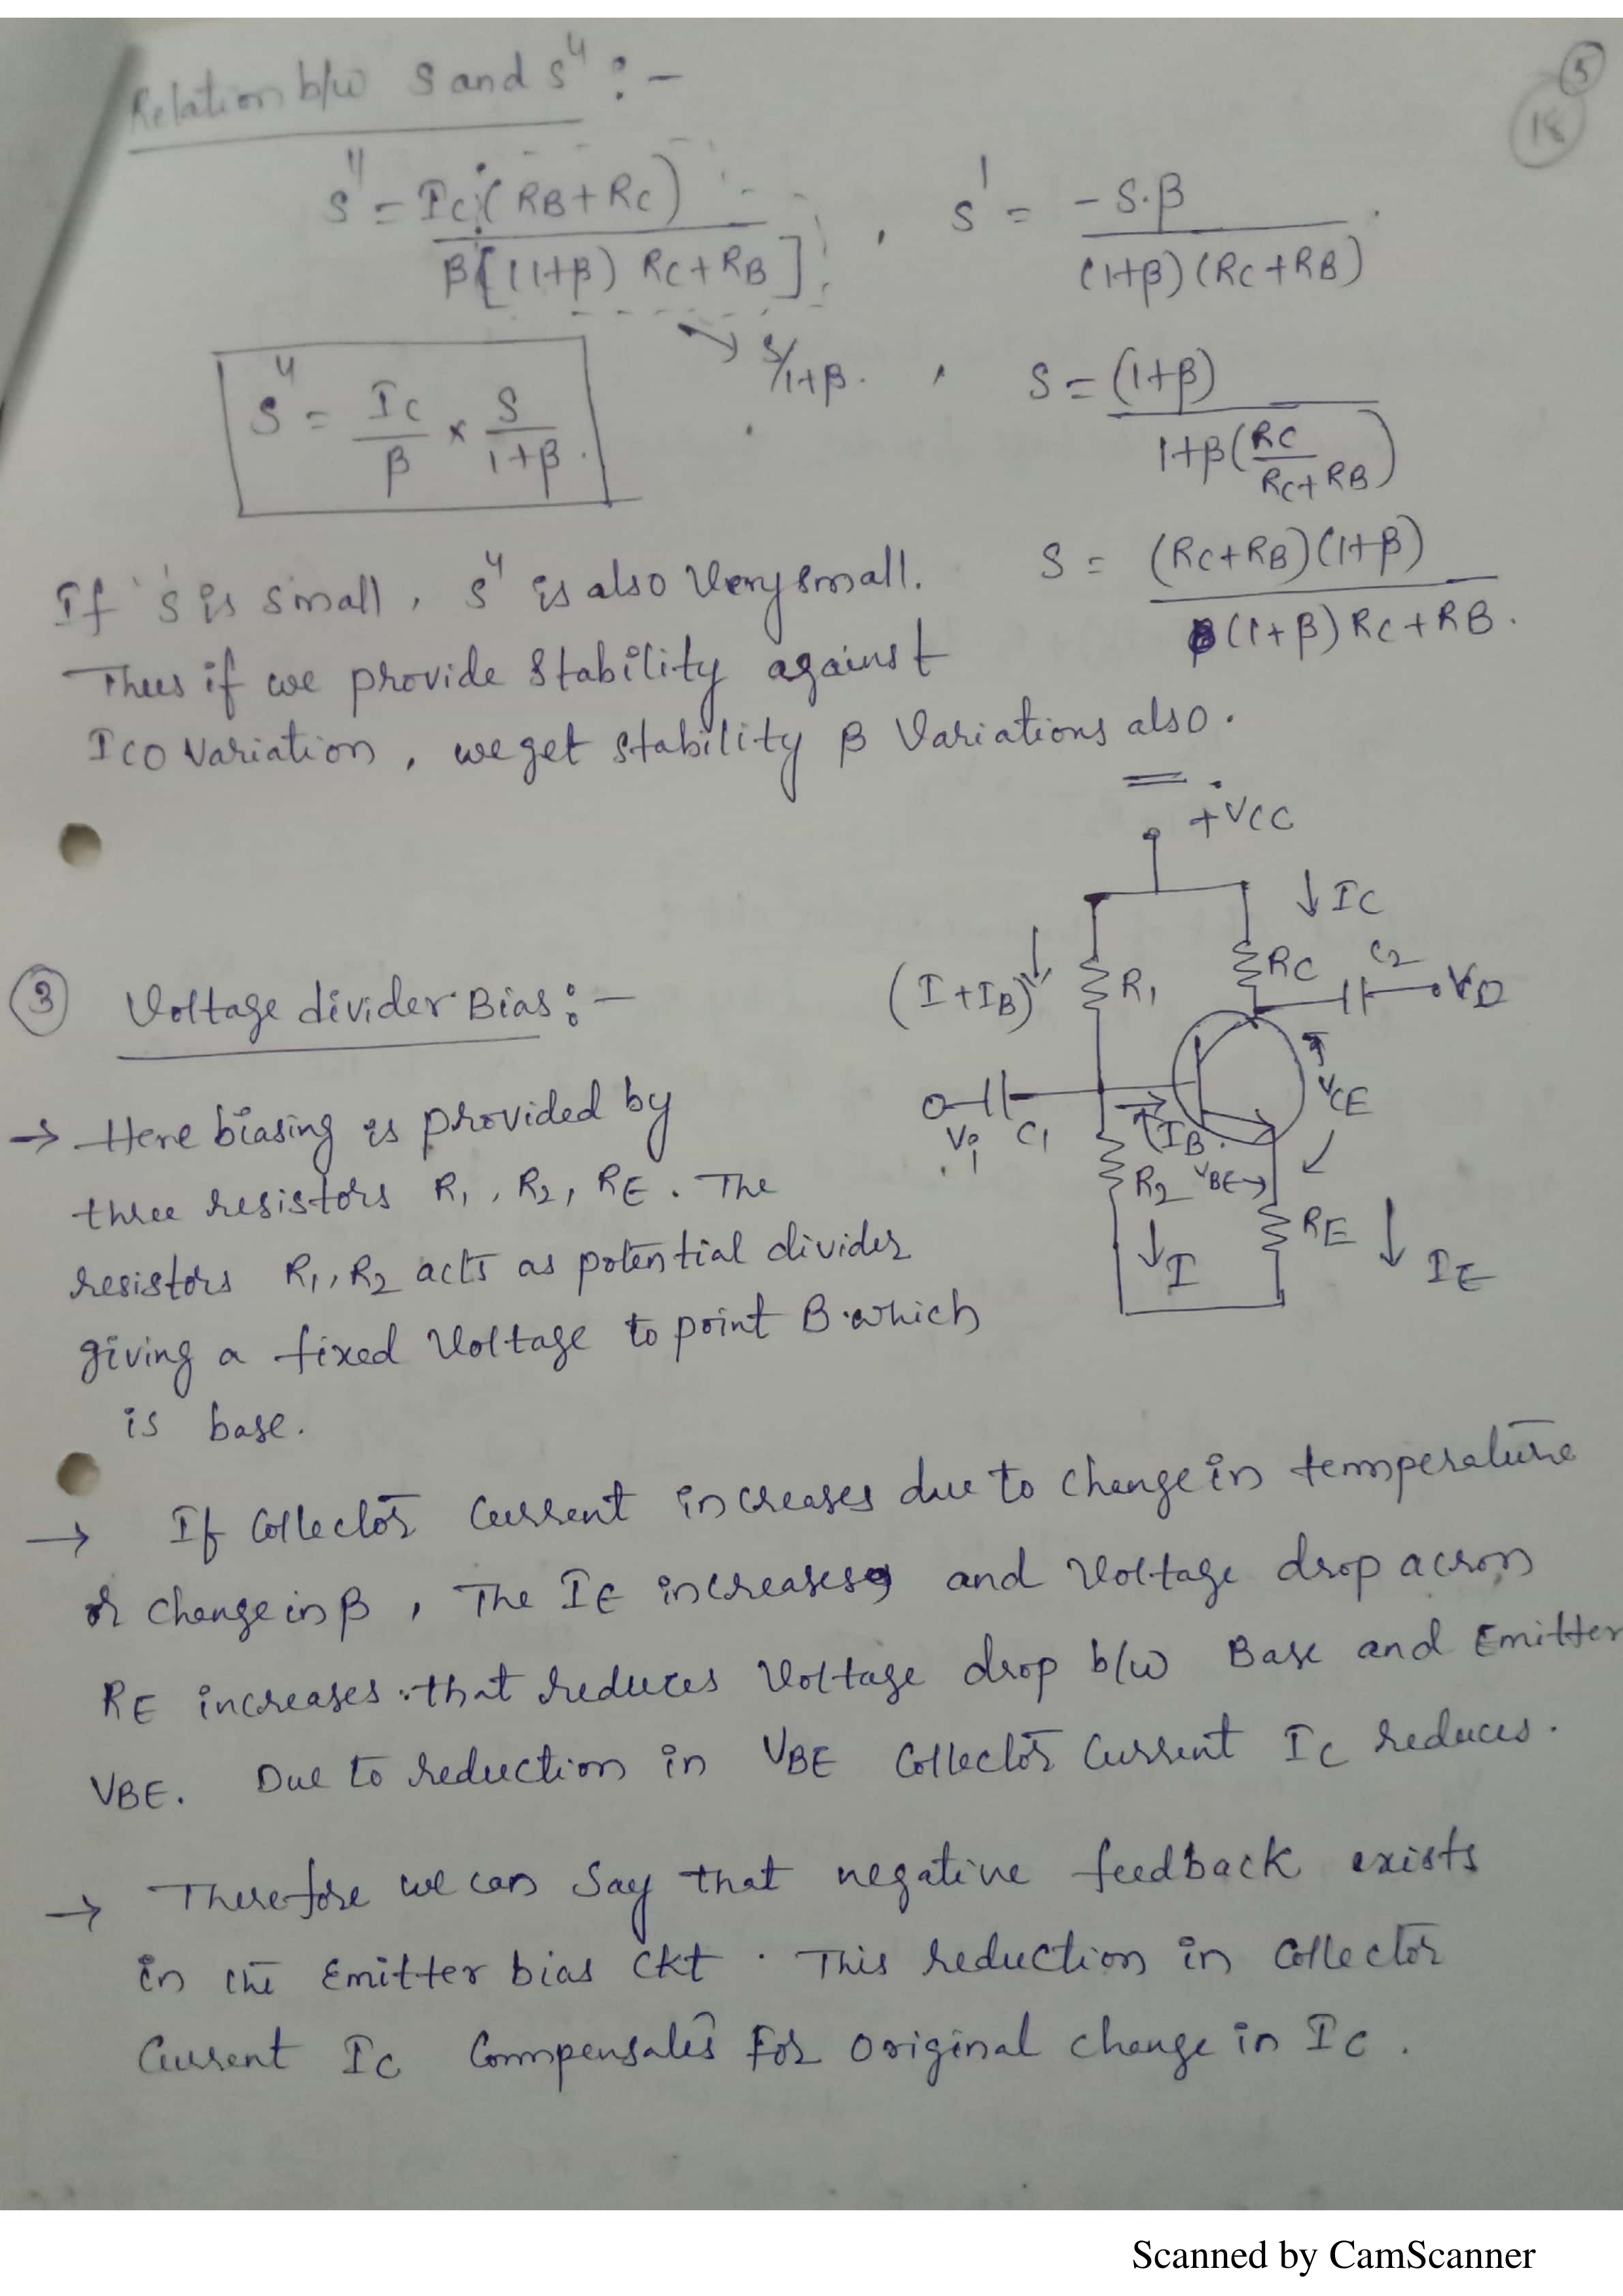 Relation b/w S and S" :-
5
18
S" = IC (RB+RC) / β[(1+β) RC+RB] , S' = -S.β / (1+β)(RC+RB)
→ S/1+β. , S = (1+β) / 1+β(RC/RC+RB)
S" = IC/β × S/1+β.
S = (RC+RB)(1+β) / (1+β) RC+RB.
If 'S is small, S" is also very small.
Thus if we provide stability against
ICO variation, we get stability β variations also.
+VCC
↓ IC
(I+IB) ↓ R1 RC C2 VO
③ Voltage divider Bias :-
Vi C1 IB. VCE
R2 VBE→ RE ↓ IE
↓ I
→ Here biasing is provided by
three resistors R1, R2, RE. The
resistors R1, R2 acts as potential divider
giving a fixed voltage to point B which
is base.
→ If Collector Current increases due to change in temperature
or change in β, The IE increases and voltage drop across
RE increases that reduces voltage drop b/w Base and Emitter
VBE. Due to reduction in VBE Collector Current IC reduces.
→ Therefore we can say that negative feedback exists
in the Emitter bias ckt. This reduction in collector
Current IC Compensates For original change in IC.
Scanned by CamScanner